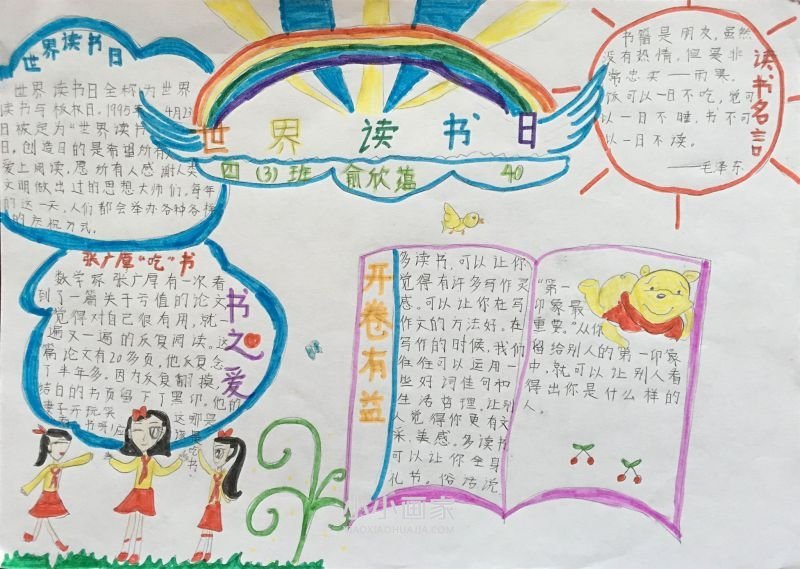 世界读书日
世界读书日全称为世界
读书与版权日。1995年 4月23
日被定为“世界读书
日，创造目的是希望所有
爱上阅读，愿所有人感谢人类
文明做出过的思想大师们，每年
的这一天，人们都会举办各种各样
的庆祝方式。
世界读书日
四(3)班 俞欣蕴 40
读书名言
书籍是朋友，虽然
没有热情，但是非
常忠实——雨果。
饭可以一日不吃，觉可
以一日不睡，书不可
以一日不读。
——毛泽东
张广厚“吃”书
数学家张广厚有一次看
到了一篇关于亏值的论文，
觉得对自己很有用，就一
遍又一遍的反复阅读。这
篇论文有20多页，他反复念
了半年多，因为反复翻摸，
洁白的书页留下了黑印，他的
妻子开玩笑
这哪是
吃书
书之爱
开卷有益
多读书，可以让你
觉得有许多写作灵
感。可以让你在写
作文的方法好。在
写作的时候，我们
往往可以运用一
些好词佳句和
生活哲理。让别
人觉得你更有文
采、美感。多读书
可以让你全身
礼书。俗话说
“第一
印象最
重要。”从你
留给别人的第一印象
中，就可以让别人看
得出你是什么样的
人。
小小画家
XIAOXIAOHUAJIA.COM